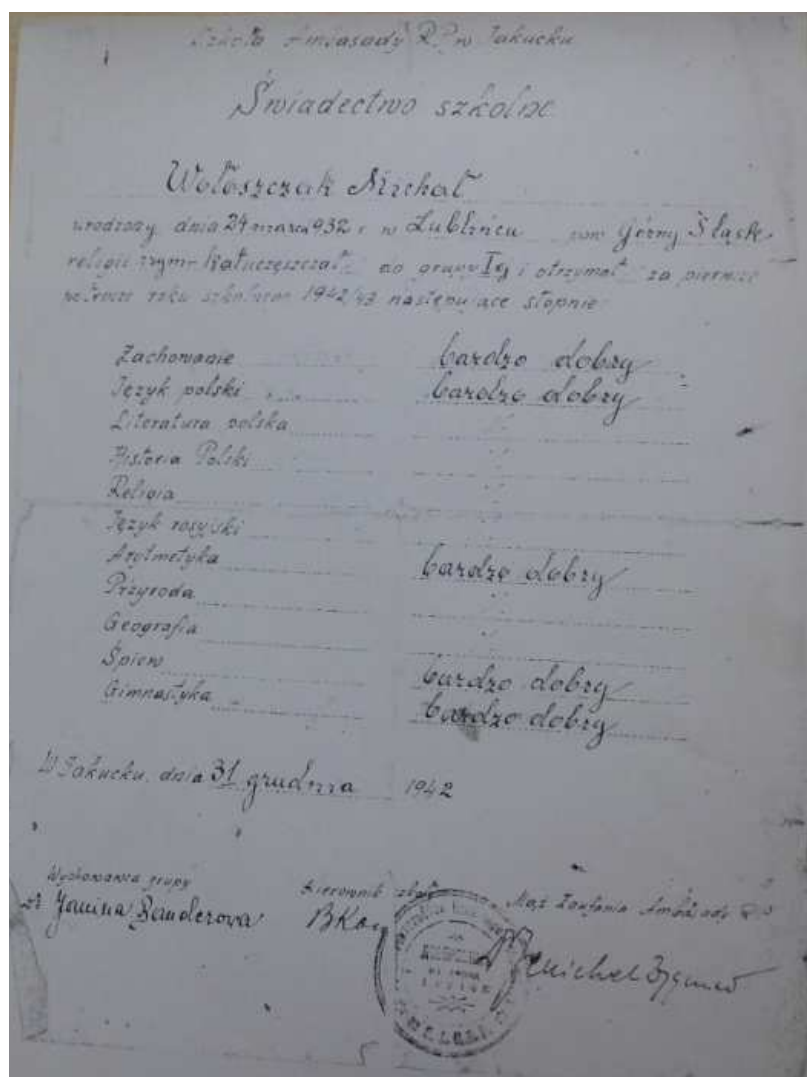 Szkoła Ambasady R.P. w Jakucku
Świadectwo szkolne
Wołoszczak Michał
urodzony dnia 24 marca 932 r. w Lublińcu pow Górny Śląsk
religii rzym-kat uczęszczał do grupy I ej i otrzymał za pierwsze
półrocze roku szkolnego 1942/43 następujące stopnie
Zachowanie bardzo dobry
Język polski bardzo dobry
Literatura polska
Historia Polski
Religia
Język rosyjski
Arytmetyka bardzo dobry
Przyroda
Geografia
Śpiew bardzo dobry
Gimnastyka bardzo dobry
W Jakucku, dnia 31 grudnia 1942
Wychowawca grupy Kierownik szkoły Mąż Zaufania Ambasady R.P.
Janina Banderowa